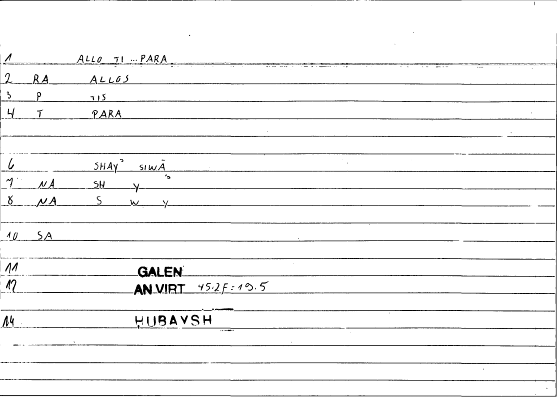 1 ALLO TI ... PARA
2 RA ALLOS
3 P TIS
4 T PARA
6 SHAYʾ SIWĀ
7 NA SH Y ʾ
8 NA S W Y
10 SA
11 GALEN
12 AN VIRT 45.2F:19.5
14 HUBAYSH